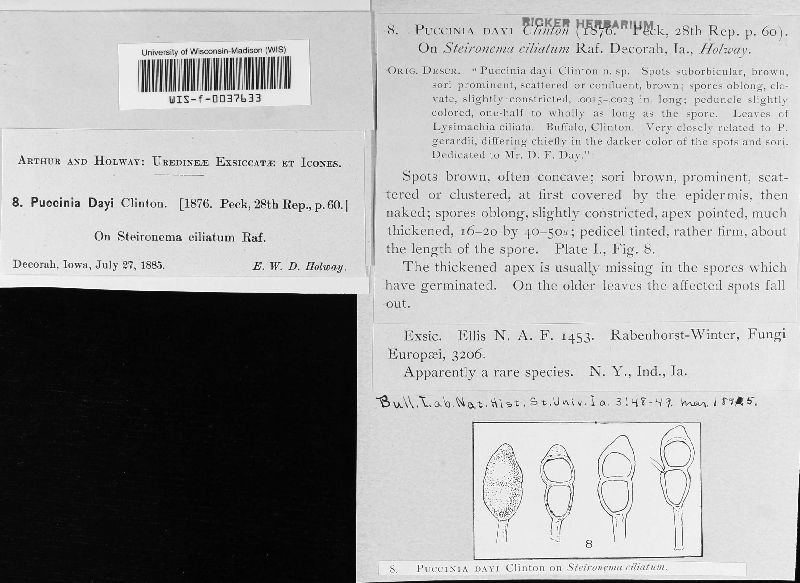 University of Wisconsin-Madison (WIS)
WIS-f-0037633
Arthur and Holway: Uredineæ Exsiccatæ et Icones.
8. Puccinia Dayi Clinton. [1876. Peck, 28th Rep., p. 60.]
On Steironema ciliatum Raf.
Decorah, Iowa, July 27, 1885. E. W. D. Holway.
RICKER HERBARIUM
8. Puccinia dayi Clinton (1876. Peck, 28th Rep. p. 60).
On Steironema ciliatum Raf. Decorah, Ia., Holway.
Orig. Descr. "Puccinia dayi Clinton n. sp. Spots suborbicular, brown,
sori prominent, scattered or confluent, brown; spores oblong, cla-
vate, slightly constricted, .0015-.0023 in. long; peduncle slightly
colored, one-half to wholly as long as the spore. Leaves of
Lysimachia ciliata. Buffalo, Clinton. Very closely related to P.
gerardii, differing chiefly in the darker color of the spots and sori.
Dedicated to Mr. D. F. Day."
Spots brown, often concave; sori brown, prominent, scat-
tered or clustered, at first covered by the epidermis, then
naked; spores oblong, slightly constricted, apex pointed, much
thickened, 16-20 by 40-50µ; pedicel tinted, rather firm, about
the length of the spore. Plate I., Fig. 8.
The thickened apex is usually missing in the spores which
have germinated. On the older leaves the affected spots fall
out.
Exsic. Ellis N. A. F. 1453. Rabenhorst-Winter, Fungi
Europæi, 3206.
Apparently a rare species. N. Y., Ind., Ia.
Bull. Lab. Nat. Hist. St. Univ. Ia. 3:48-49. Mar. 1895.
8
8. Puccinia dayi Clinton on Steironema ciliatum.